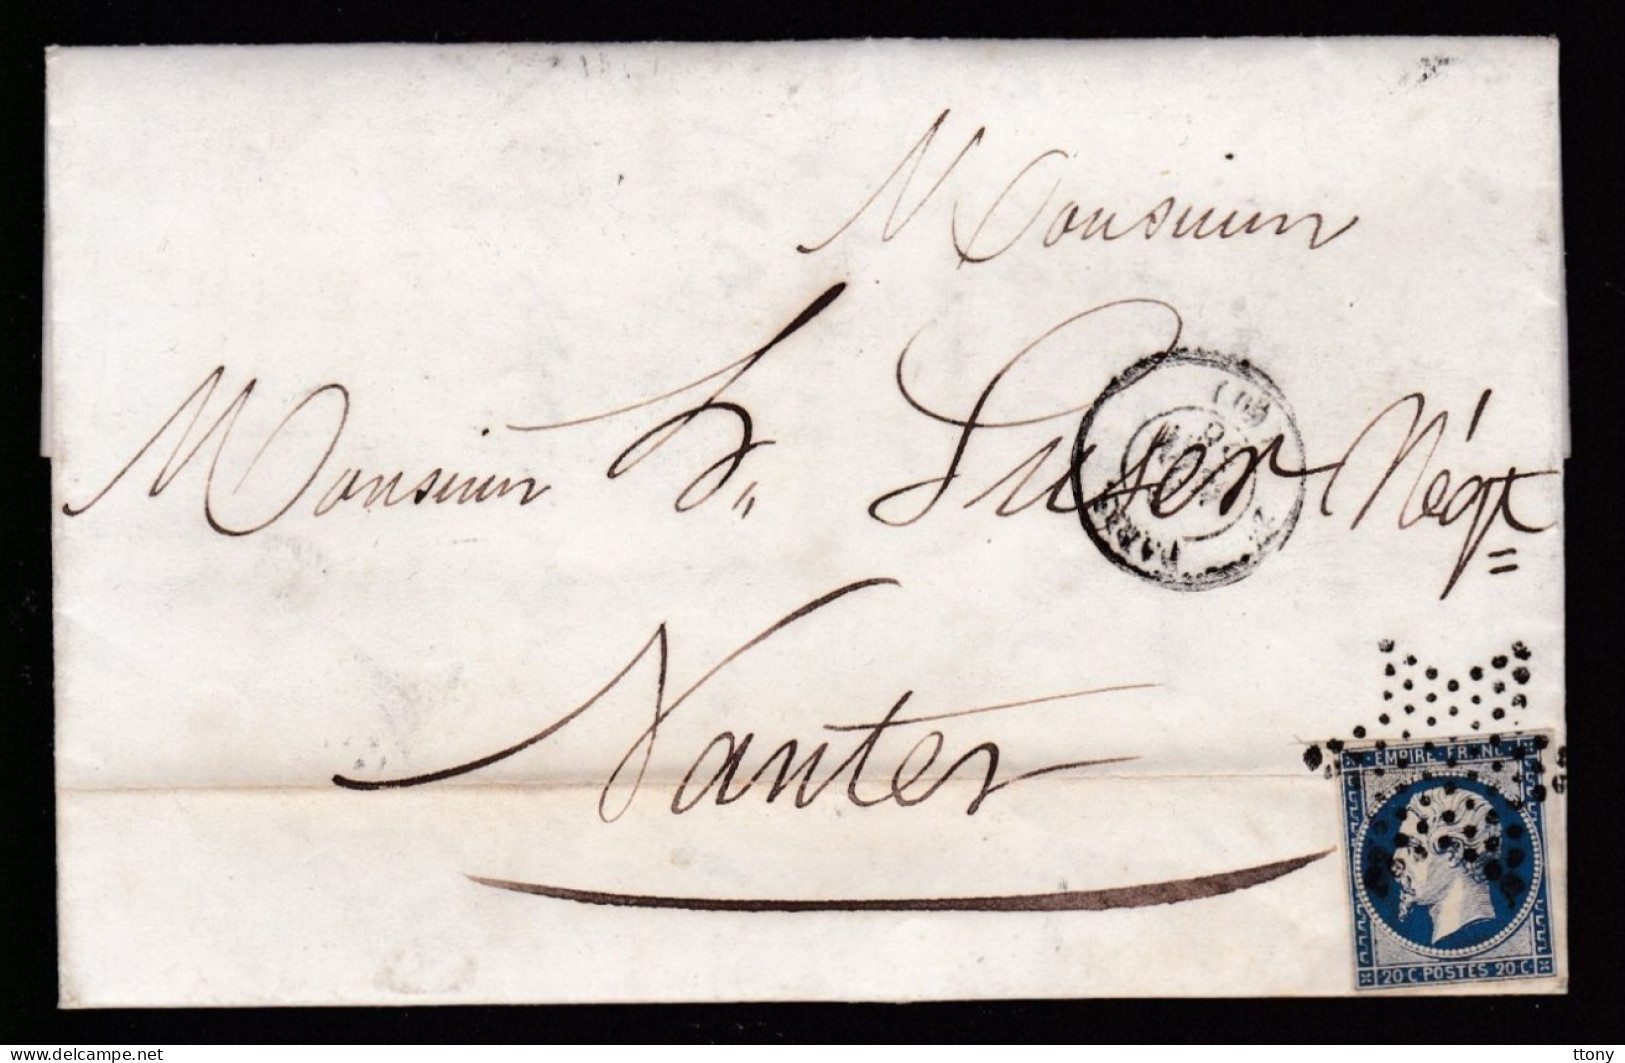 Monsieur
Monsieur Négt
Nantes
PARIS
(60)
EMPIRE FRANC
20 C POSTES 20 C
delcampe.net
ttony